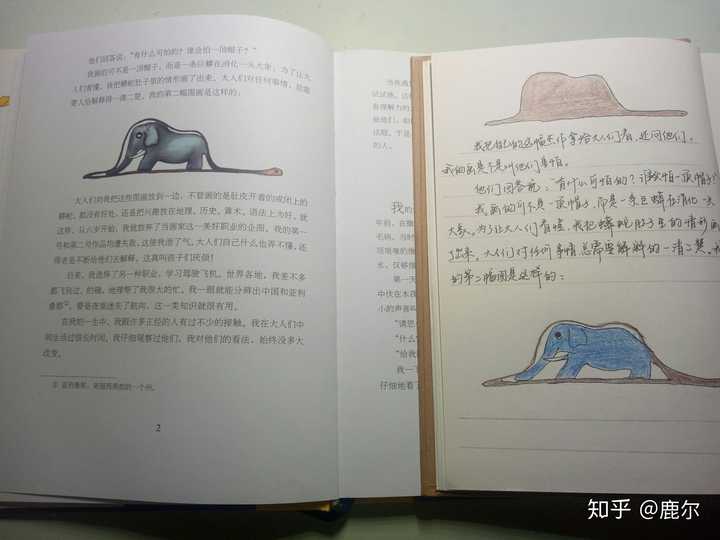 他们回答说:“有什么可怕的?谁会怕一顶帽子?”
我画的可不是一顶帽子,而是一条巨蟒在消化一头大象。为了让大
人们看懂,我把蟒蛇肚子里的情形画了出来。大人们对任何事情,总需
要人给解释得一清二楚。我的第二幅图画是这样的:
大人们劝我把这些图画放到一边,不管画的是肚皮开着的或闭上的
蟒蛇,都没有好处,还是把兴趣放在地理、历史、算术、语法上为好。就
这样,从六岁开始,我就放弃了当画家这一美好职业的企图。我的第一
号和第二号作品均遭失败,这使我泄了气。大人们自己什么也弄不懂,还
得老是不断给他们去解释,这真叫孩子们厌烦!
后来,我选择了另一种职业,学习驾驶飞机。世界各地,我差不多
都飞到过。的确,地理帮了我很大的忙。我一眼就能分辨出中国和亚利
桑那①。要是夜里迷失了航向,这一类知识就很有用。
在我的一生中,我跟许多正经的人有过不少的接触。我在大人们中
间生活过很长时间。我仔细观察过他们。我对他们的看法,始终没多大
改变。
① 亚利桑那,美国西南部的一个州。
2
当我遇
试试她。这
有理解力的
做他们,
话题。于是
的人。
我的
年前,在撒
毛病。当时
很艰难的修
长,仅够维
第一天
中伏在木筏
小的声音叫
“请您
“什么
“给我
我一下
仔细地看了
我把自己的这幅杰作拿给大人们看,还问他们,
我的画是不是叫他们害怕。
他们回答说:“有什么可怕的?谁会怕一顶帽子?”
我画的可不是一顶帽子,而是一条巨蟒在消化一头
大象。为了让大人们看懂,我把蟒蛇肚子里的情形画
了出来。大人们对任何事情总需要解释的一清二楚。我
的第二幅图是这样的:
知乎 @鹿尔